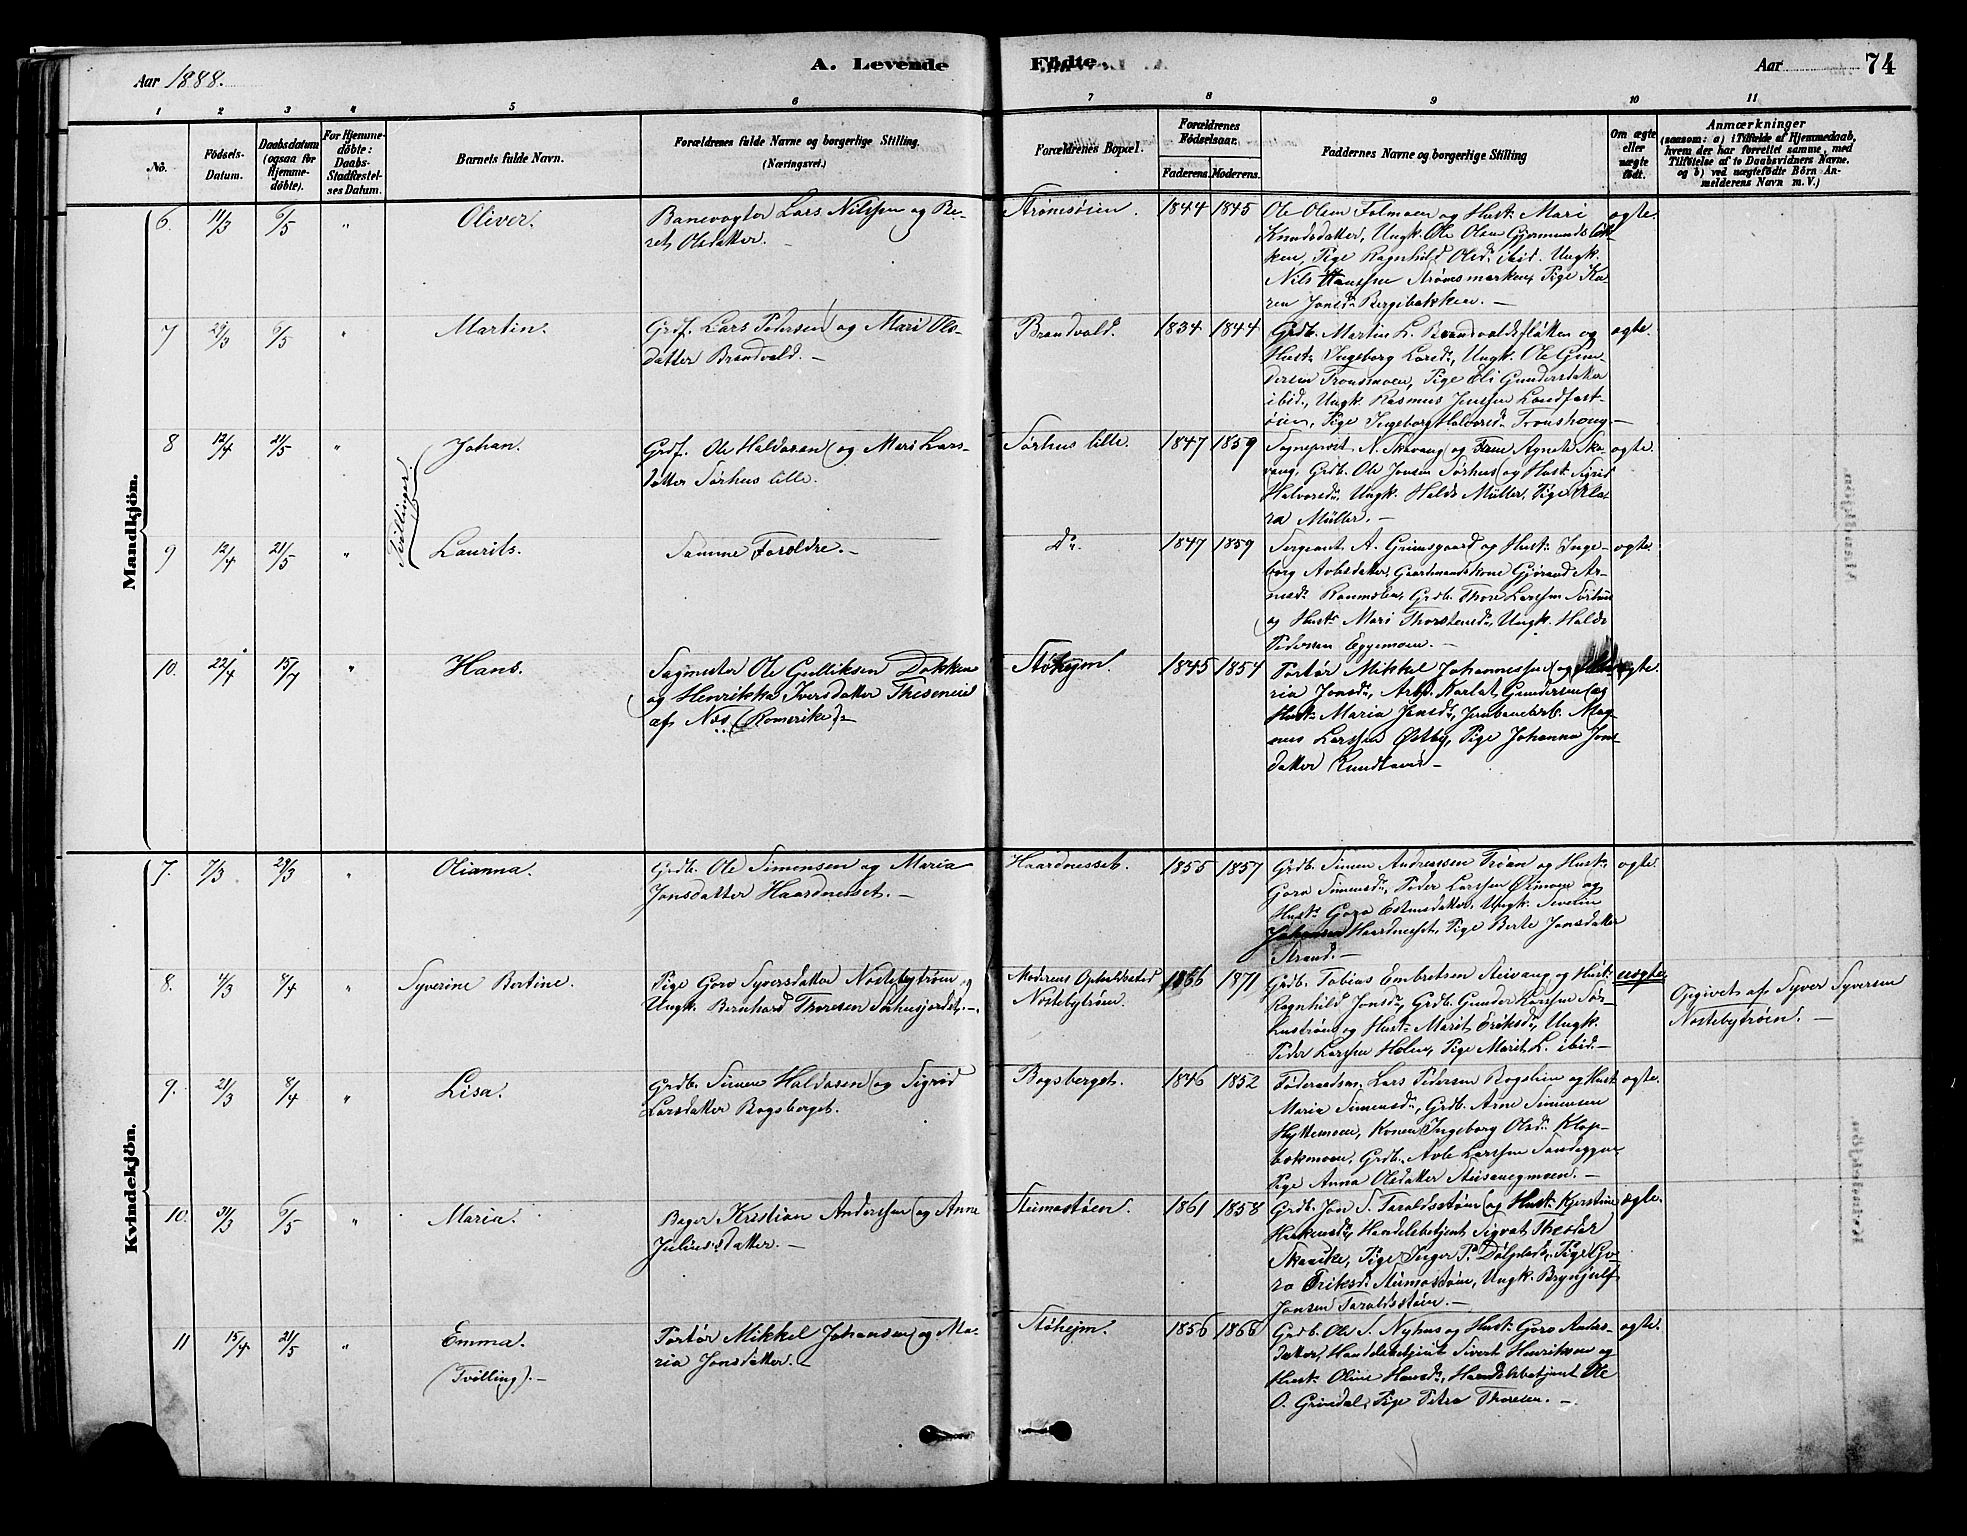 Aar 1888.
A. Levende
Födte.
Aar
74
1
2
3
4
5
6
7
8
9
10
11
No.
Födsels-
Datum.
Daabsdatum
(ogsaa för
Hjemme-
döbte).
For Hjemme-
döbte:
Daabs-
Stadfæstel-
ses Datum.
Barnets fulde Navn.
Forældrenes fulde Navne og borgerlige Stilling.
(Næringsvei.)
Forældrenes Bopæl.
Forældrenes
Födselsaar.
Faderens.
Moderens.
Faddernes Navne og borgerlige Stilling
Om ægte
eller
uægte
født.
Anmærkninger
(saasom: a) i Tilfælde af Hjemmedaab,
hvem der har forrettet samme, med
Tilföielse af to Daabsvidners Navne.
og b) ved uægtefödte Börn An-
melderens Navn m. V.)
Mandkjön.
6. 11/3 6/5 " Oliver.
Banevogter Lars Nilssen og Be-
ret Olsdatter. —
Strømsøien. 1844 1845
Ole Olsen Folmoen og Hust. Mari
Knudsdatter, Ungk. Ole Olsen Gjermundsbak-
ken, Pige Ragnhild Olsd. ibid. Ungk.
Nils Hanssen Strømsmarken, Pige Ka-
ren Jonsd. Bergebakken. —
ægte.
7 29/3 6/5 " Martin.
Grdf. Lars Pedersen og Mari Ols-
datter Brandvold. —
Brandvold. 1834 1844
Grdb. Martin L. Brandvoldsfløtten og
Hust. Ingeborg Larsd., Ungk. Ole Gun-
dersen Tronsmoen, Pige Eli Gundersdatter
ibid., Ungk. Rasmus Jenssen Landfast-
øien, Pige Ingeborg Halvorsd. Tronshoug —
ægte.
Tvillinger
8 12/4 21/5 " Johan.
Grdf. Ole Haldosen og Mari Lars-
datter Sørhus lille.
Sørhus lille. 1847 1859
Sogneprest N. Skavang og Frue Agnete Ska-
vang, Grdb. Ole Jonsen Sørhus og Hust. Sigrid
Halvorsd., Ungk. Haldo Müller, Pige Kla-
ra Müller. —
ægte.
9 12/4 21/5 " Laurits.
Samme Forældre. —
Do. 1847 1859
Sergeant A. Grimsgaard og Hust. Inge-
borg Avlsdatter, Gaardmandskone Gjørand Ar-
nesd. Ranmælen, Grdb. Thore Larssen Sørhus
og Hust. Mari Thorstensd., Ungk. Haldo
Pedersen Eggemoen. —
ægte.
10. 22/4 15/7 " Hans.
Sagmester Ole Gulliksen Dokken
og Henrikka Iversdatter Theseneie
af Næs (Romerike). —
Støhejm. 1845 1854
Portør Mikkel Johannessen og Ma-
ria Jonsd., Arb. Karl Gundersen og
Hust. Maria Jonsd., Jernbanebetj. Mag-
nus Larssen Østby, Pige Johanna Jons-
datter
ægte.
Kvindekjön.
7. 7/3 29/3 " Olianna.
Grdb. Ole Simensen og Maria
Jonsdatter Haardnesset. —
Haardnesset. 1855 1857
Grdb. Simen Andreassen Trøen og Hust.
Goro Simensd., Peder Larssen Øimoen og
Hust. Goro Estensdatter, Ungk. Severin
Johansen Haardnesset, Pige Berte Jonsdatter
Strand. —
ægte.
8. 4/3 8/4 " Syverine Bertine.
Pige Goro Syversdatter Nostebytrøen og
Ungk. Bernhard Thoresen Sørhusjordet. —
Moderens Opholdssted
Nostebytrøen. 1866 1871
Grdb. Tobias Embretsen Steivang og Hust.
Ragnhild Jonsd., Grdb. Gunder Larssen Sør-
hustrøen og Hust. Marit Eriksd., Ungk.
Peder Larssen Holen, Pige Marit L. ibid. —
uægte
Opgivet af Syver Syversen
Nostebytrøen. —
9. 21/3 8/4 " Lisa.
Grdb. Simen Haldosen og Sigrid
Larsdatter Bogsberget.
Bogsberget. 1846 1852
Føderaadsm. Lars Pedersen Bogslien og Hust.
Maria Simensd., Grdb. Arne Simensen
Hyttemoen, Konen Ingeborg Olsd. Klop-
bækmoen, Grdb. Avle Larssen Sandeggen,
Pige Anna Olsdatter Steivangmoen. —
ægte.
10. 31/3 6/5 " Maria.
Bager Kristian Anderssen og Anne
Juliusdatter. —
Steimostøen. 1861 1858
Grdb. Jon S. Taraldsstøen og Hust. Kjerstine
Haakensd., Handelsbetjent Sigvat Thester
Skaaike, Pige Inger P. Dølplads, Pige Go-
ro Eriksd. Steimostøen, Ungk. Brynjulf
Jonsen Taraldsstøen. —
ægte.
11 15/4 21/5 " Emma.
(Tvilling). —
Portør Mikkel Johansen og Ma-
ria Jonsdatter. —
Støhejm. 1856 1866
Grdb. Ole S. Nyhus og Hust. Goro Anders-
datter, Handelsbetjent Sivert Henriksen og
Hust. Oline Hansd., Handelsbetjent Ole
O. Grindal, Pige Petra Thoresen. —
ægte.